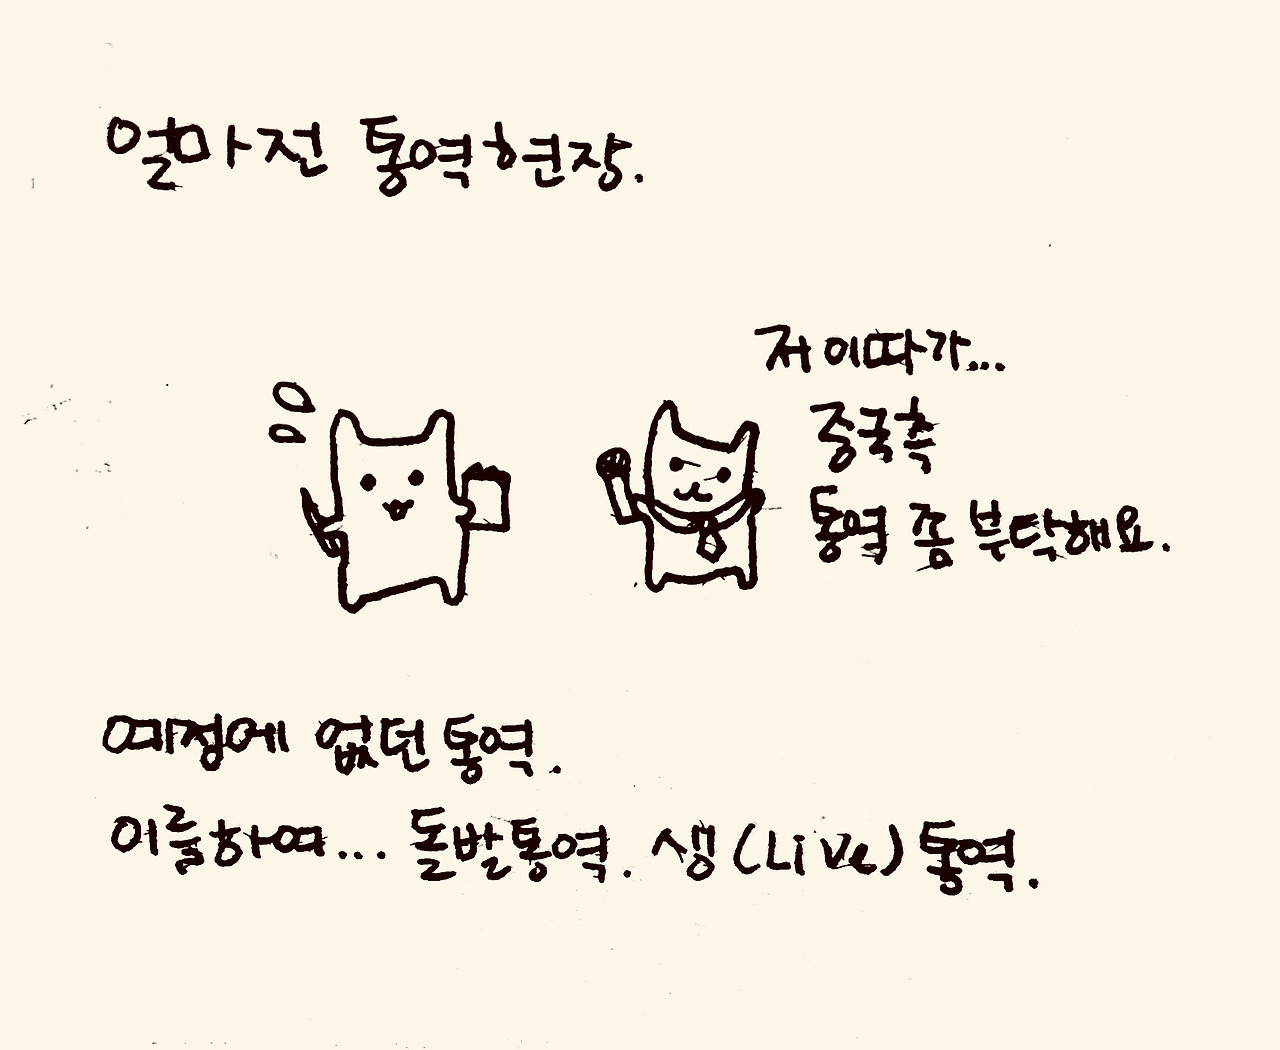 얼마전 통역현장.
저 이따가...
중국측
통역 좀 부탁해요.
예정에 없던 통역.
이를하여... 돌발통역. 생(Live)통역.